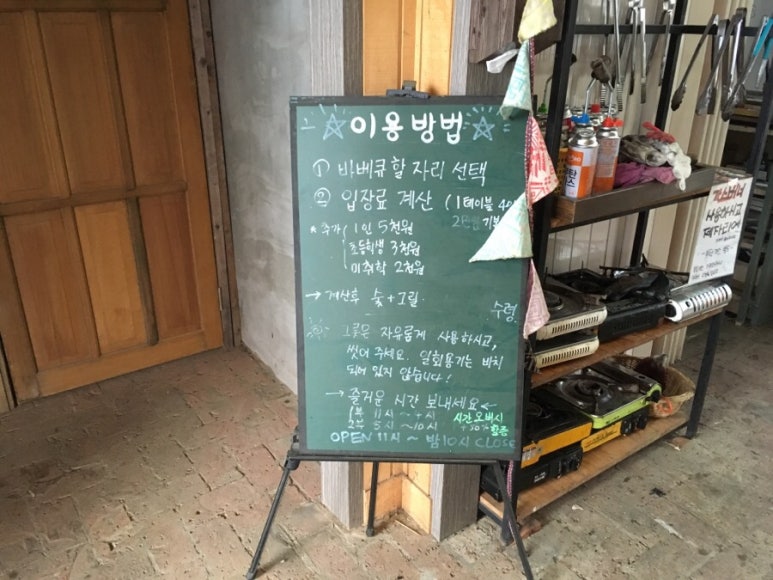 이용방법
① 바베큐 할 자리 선택
② 입장료 계산 (1테이블 4인
2만원 기본
* 추가 1인 5천원
초등학생 3천원
미취학 2천원
→ 계산후 숯+그릴
수령
그릇은 자유롭게 사용하시고,
씻어 주세요. 일회용기는 비치
되어 있지 않습니다!
→ 즐거운 시간 보내세요 ←
1부 11시 ~ 4시 시간 오버시
2부 5시 ~ 10시 + 50% 할증
OPEN 11시 ~ 밤 10시 CLOSE
사용하시고
제자리에